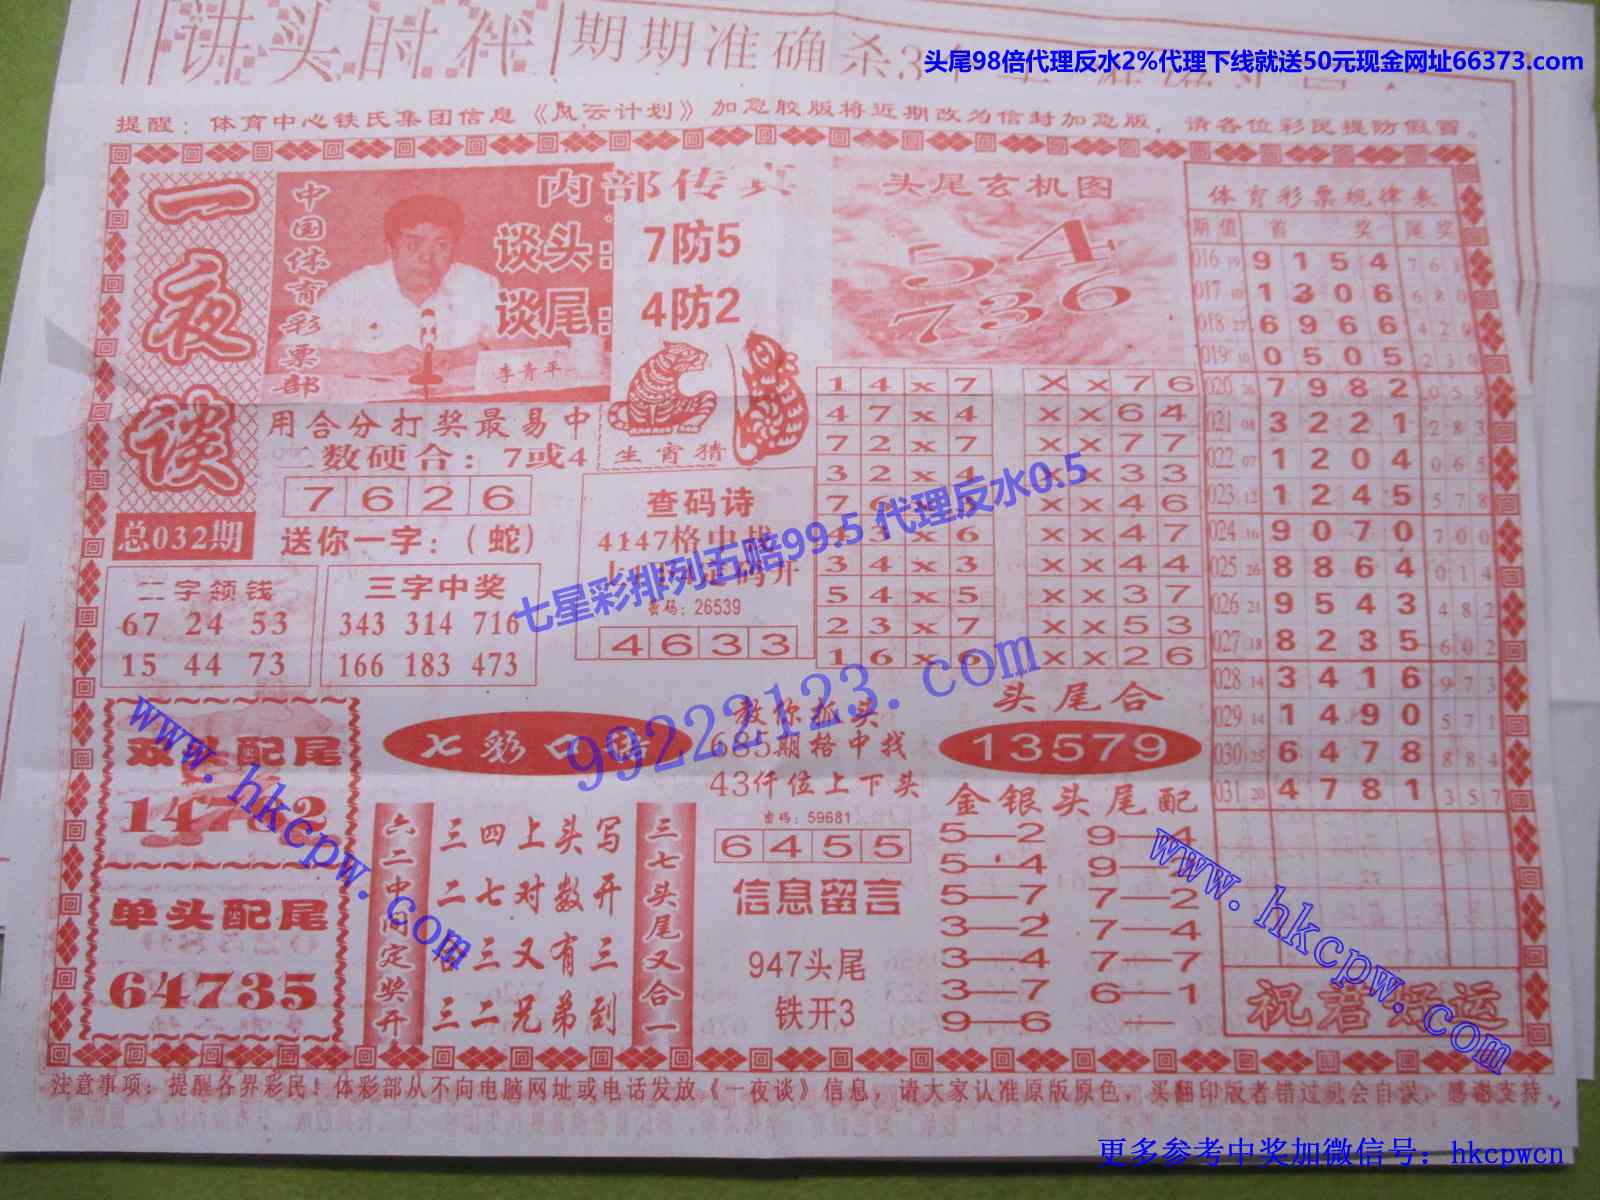 讲头时代
期期准确杀3
头尾98倍代理反水2%代理下线就送50元现金网址66373.com
提醒：体育中心铁氏集团信息《风云计划》加急胶版将近期改为信封加急版，请各位彩民提防假冒。
一夜谈
总032期
中国体育彩票部
内部传真
谈头：7防5
谈尾：4防2
李青平
用合分打奖最易中
二数硬合：7或4
7 6 2 6
送你一字：（蛇）
生肖猜
头尾玄机图
5 4
7 3 6
二字领钱
67 24 53
15 44 73
三字中奖
343 314 716
166 183 473
查码诗
4147格中战
密码：26539
4 6 3 3
1 4 x 7
4 7 x 4
7 2 x 7
3 2 x 4
4 3 x 6
3 4 x 3
5 4 x 5
2 3 x 7
1 6 x 6
X x 7 6
x x 6 4
x x 7 7
x x 3 3
x x 4 6
x x 4 7
x x 4 4
x x 3 7
x x 5 3
x x 2 6
体育彩票规律表
期值 首 奖 尾奖
016 19 9 1 5 4 7 6
017 1 3 0 6 6 8 0
018 27 6 9 6 6 4 2
019 10 0 5 0 5 2 3 0
020 26 7 9 8 2 0 5 9
021 08 3 2 2 1 2 8 3
022 07 1 2 0 4 0 6 5
023 12 1 2 4 5 5 7 8
024 16 9 0 7 0 7 0 0
025 26 8 8 6 4 0 1 4
026 21 9 5 4 3 4 8 2
027 18 8 2 3 5 6 0 2
028 14 3 4 1 6 9 7 3
029 14 1 4 9 0 5 7 1
030 25 6 4 7 8 8 8 4
031 20 4 7 8 1 3 5 7
祝君好运
双头配尾
单头配尾
64735
七彩口诀
六二中间定奖开
三四上头写
二七对数开
三又有三
三二兄弟到
三七头尾又合一
教你抓头
685期格中找
43仟位上下头
密码：59681
6 4 5 5
信息留言
947头尾
铁开3
头尾合
13579
金银头尾配
5—2 9—4
5—4
5—7 7—2
3—2 7—4
3—4 7—7
3—7 6—1
9—6
注意事项：提醒各界彩民！体彩部从不向电脑网址或电话发放《一夜谈》信息，请大家认准原版原色，买翻印版者错过机会自误，感谢支持。
七星彩排列五赔99.5 代理反水0.5
99222123.com
www.hkcpw.com
www.hkcpw.com
更多参考中奖加微信号：hkcpwcn